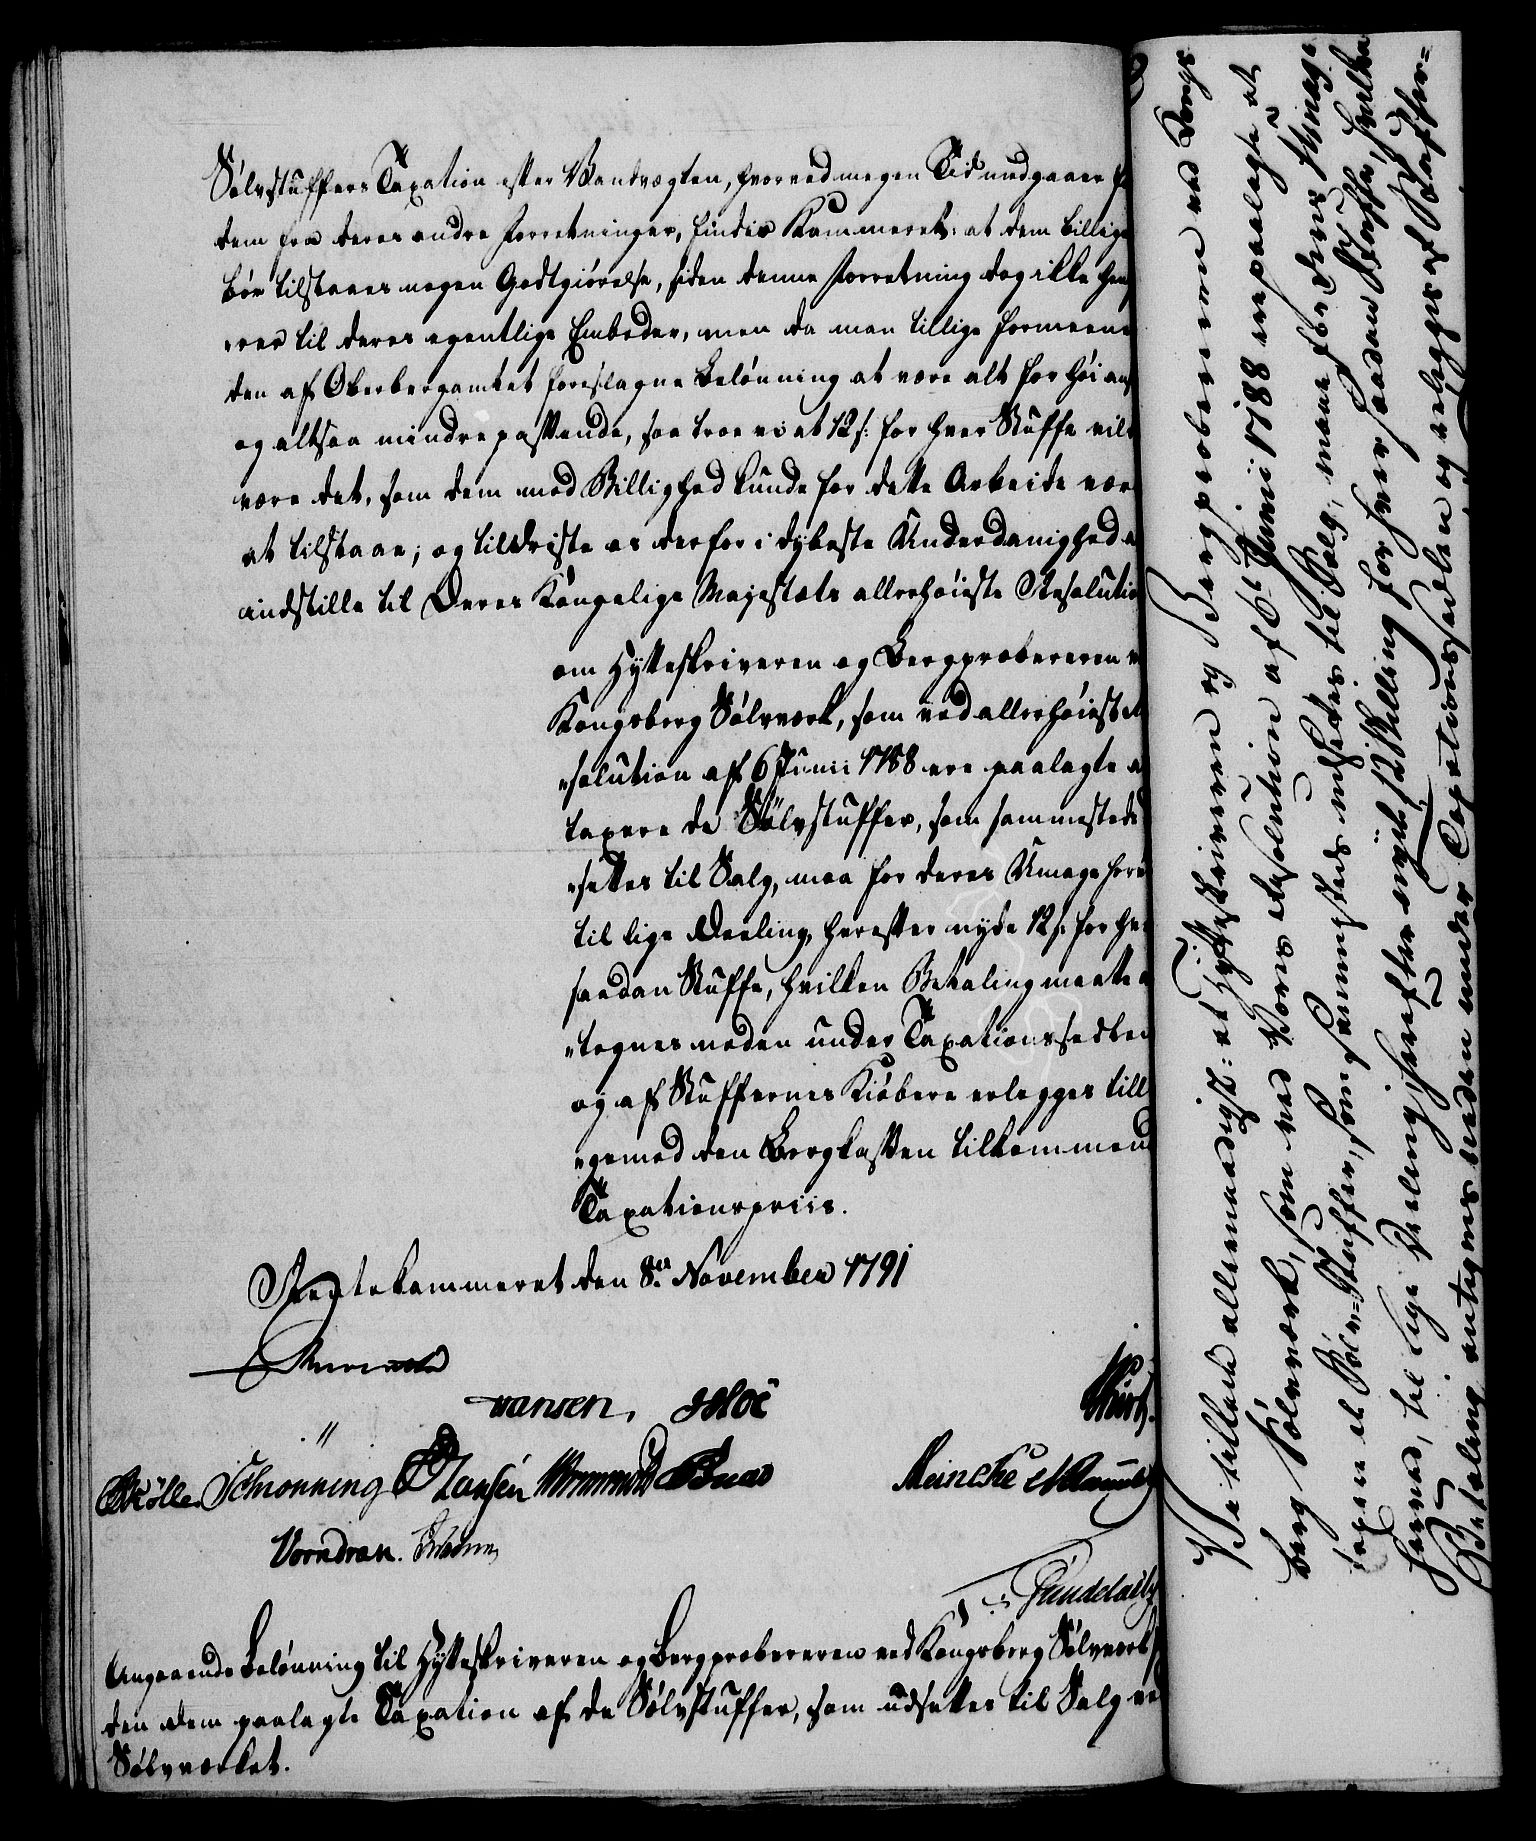 Sølvstuffers Taxation efter Vandvægten, hvorved megen Tid undgaaer
dem fra deres andre Forretninger, finder Kammeret: at dem billige
bør tilstaaes nogen Godtgiørelse, siden denne Forretning dog ikke hen
„rer til deres egentlige Embeder, men da man tillige formeene
den af Oberbergamtet foreslagne Belønning at være alt for høi
og altsaa mindre passende, saa troe vi at 12 s: for hver Stuffe vil
være det, som dem med Billighed kunde for dette Arbeide vær
at tilstaae; og tildriste os derfor i dybeste Underdanighed
indstille til Deres Kongelige Majestæts allerhøieste Resolutio
om Hytteskriveren og Bergprobereren
Kongsberg Sølvværk, som ved allerhøieste
„solution af 6 Junii 1788 ere paalagte
taxere de Sølvstuffer, som sammesteds
„settes til Salg, maa for deres Umage
til lige Deeling, herefter nyde 12 s. for
saadan Stuffe, hvilken Betaling maatte
„tegnes neden under Taxationssedlen
og af Stuffernes Kiøbere erlegges till
„gemed den Bergkassen tilkommend
Taxationspriis.
Rentekammeret den 8de November 1791
Hansen. Hoë
Müller Schiønning Hansen Wormskiold
Meincke
Vorndran.
Angaaende Belønning til Hytteskriveren og Bergprobereren ved Kongsberg Sølvværk
den dem paalagte Taxation af de Sølvstuffer, som udsettes til Salg ve
Sølvværket.
Vi ville allernaadigst: at Hytteskriveren og Bergprobereren ved Kongs
berg Sølvværk, som ved Vores Resolution af 6te Junii 1788 ere paalagte at
taxere de Sølv-Stuffer, som sammesteds udsettes til Salg, maae for deres Umage
herved, til lige Deeling herefter nyde 12 Skilling for hver saadan Stuffe, hvilken
Betaling antegnes neden under Taxationssedlen og erlegges af